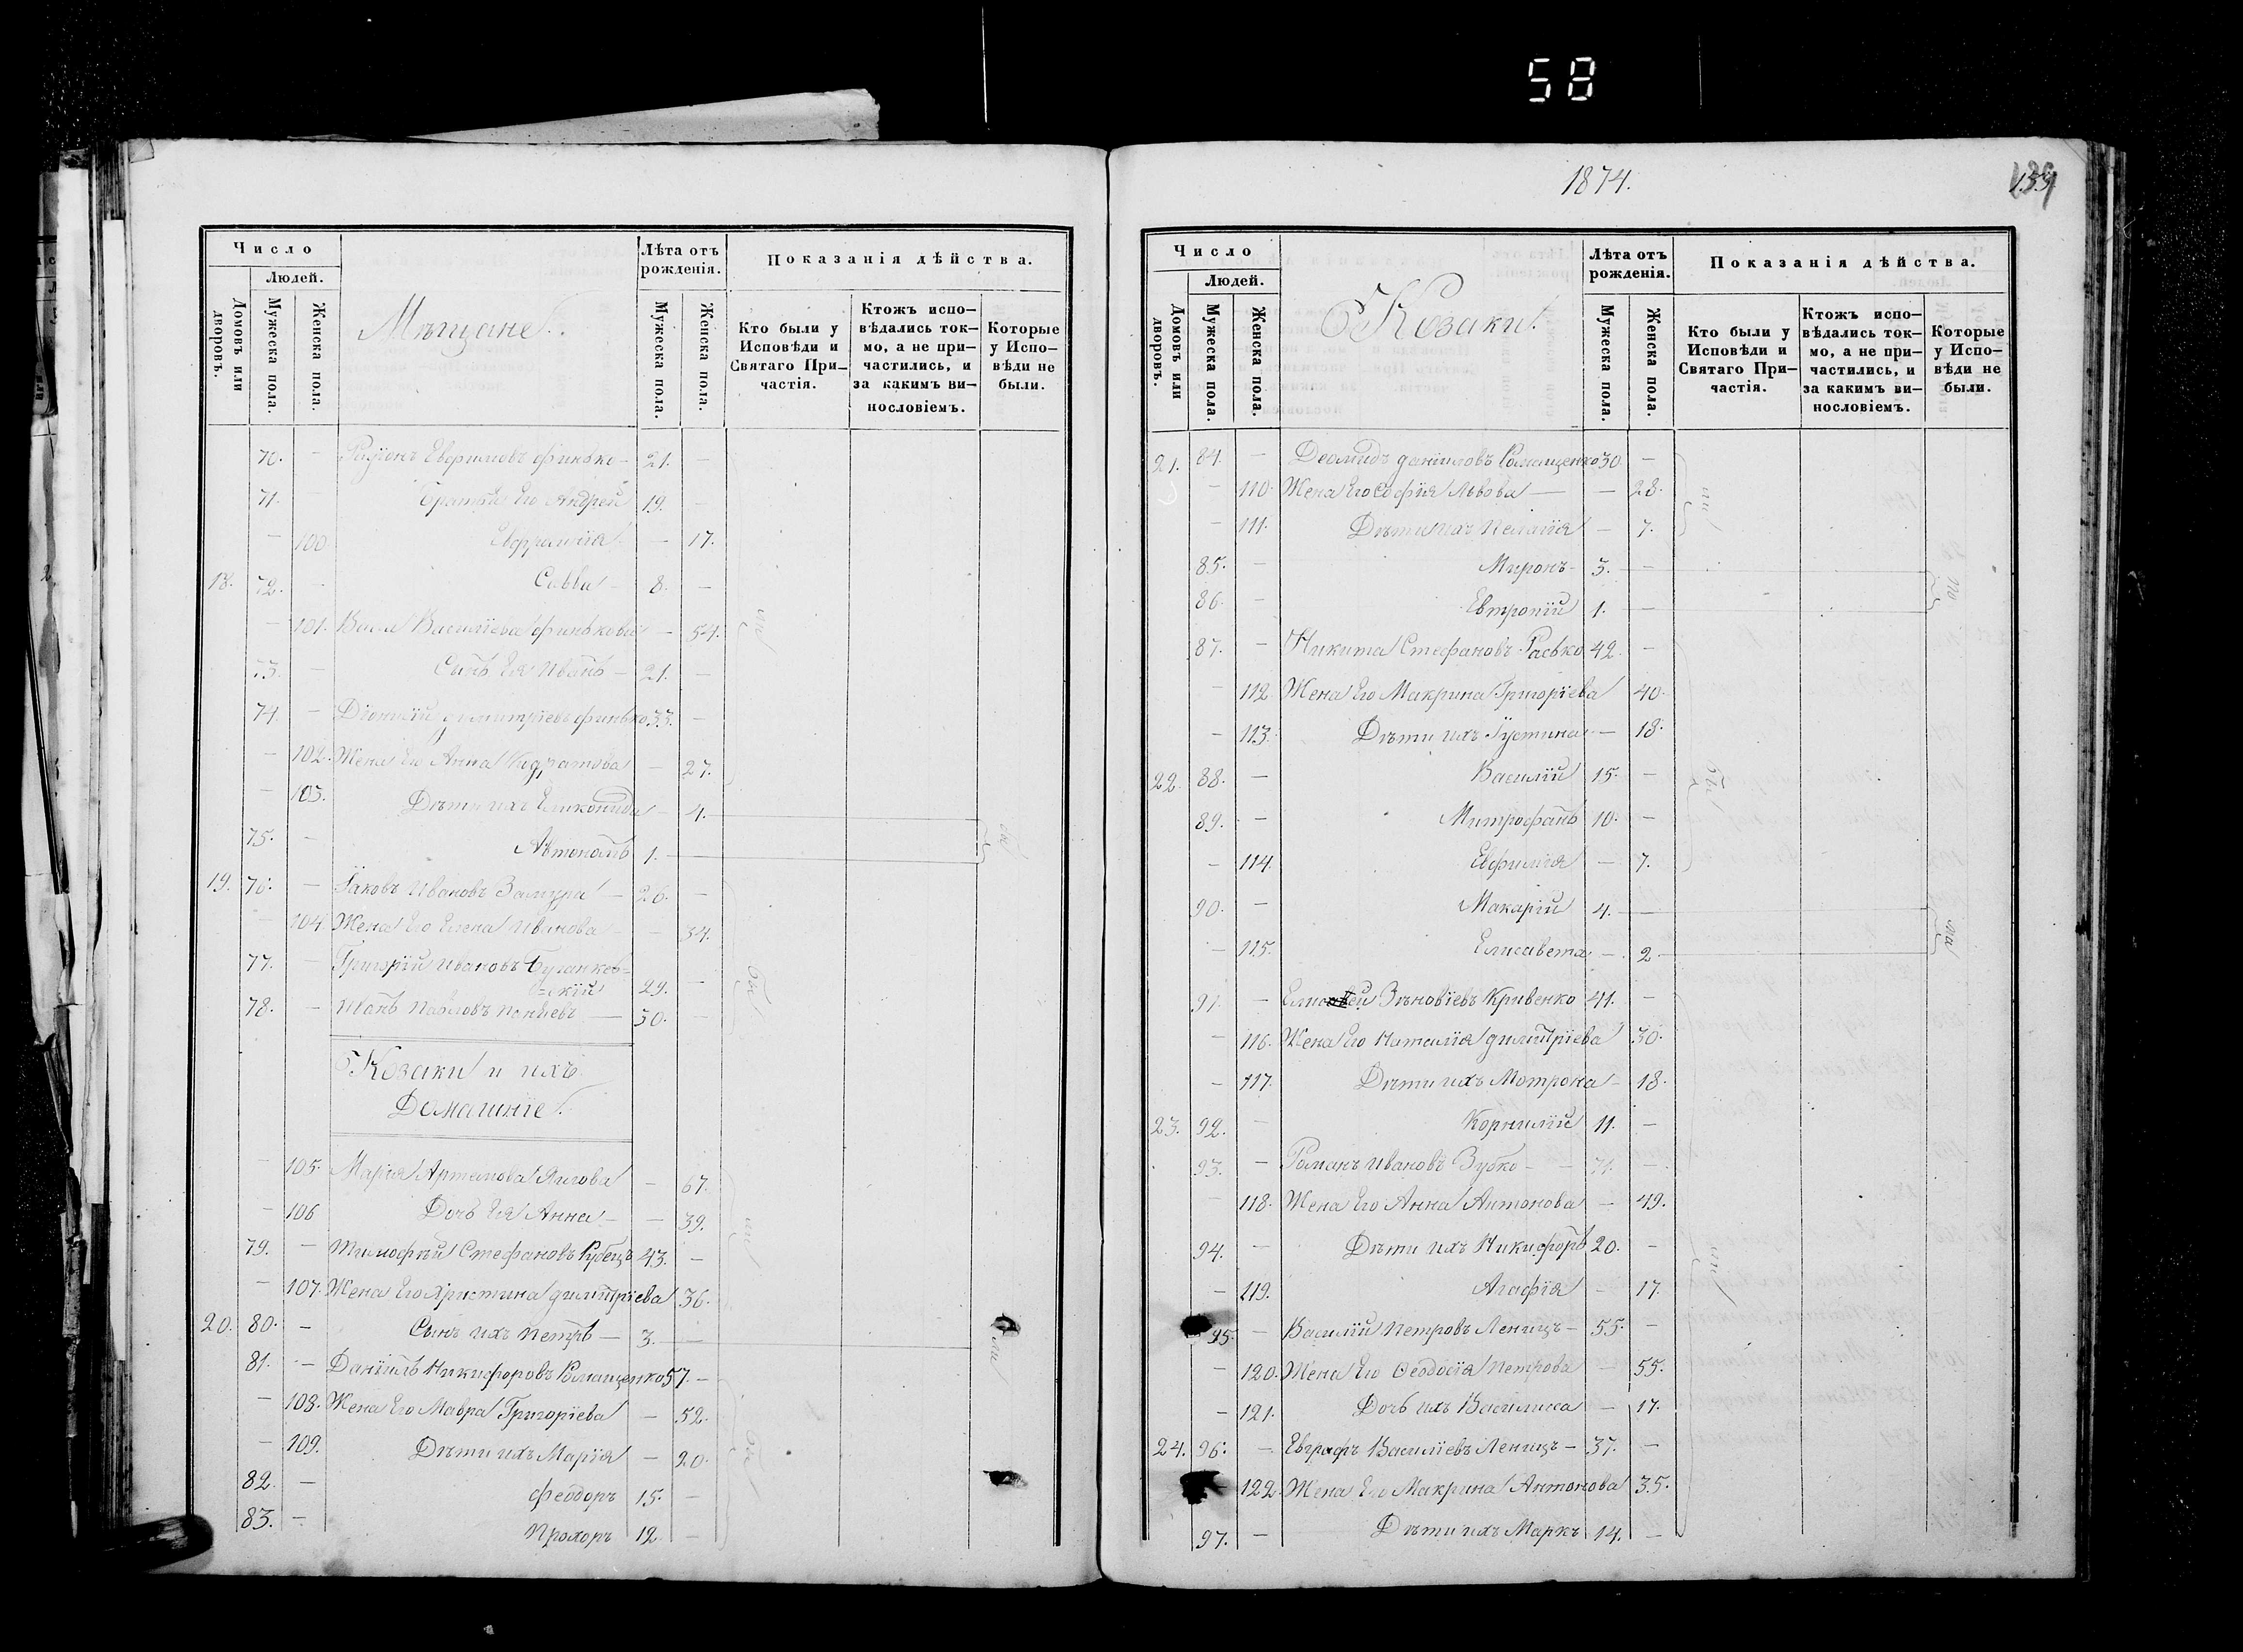 58
Число
Людей.
Домовъ или дворовъ.
Мужеска пола.
Женска пола.
Мѣщане.
Лѣта отъ рожденія.
Мужеска пола.
Женска пола.
Показанія дѣйства.
Кто были у Исповѣди и Святаго При-частія.
Ктожъ испо-вѣдались ток-мо, а не при-частились, и за какимъ ви-нословіемъ.
Которые у Испо-вѣди не были.
70. — Евфимовъ Финько — 21. —
71. — Братья Его Андрей 19. —
— 100. — 17.
18. 72. — Савва — 8. —
— 101. Васса Василіева Финькова — 54.
73. — Сынъ Ея Иванъ — 21. —
74. — Діонисій Димитріевъ Финько 33. —
— 102. Жена Его Анна Кидратова — 27.
— 103. Дѣти ихъ — 4.
75. — Автономъ 1. —
19. 76. — Іаковъ Ивановъ — 26. —
— 104. Жена Его Елена Иванова — — 34.
77. — Григорій Ивановъ
=скій 29. —
78. — Иванъ Павловъ — 50. —
Козаки и ихъ
Домашніе.
— 105. Марія Артемова — 67.
— 106 Дочь Ея Анна — — 39.
79. — Тимофѣй Стефановъ Рубецъ 43. —
— 107. Жена Его Христина Димитріева 36.
20. 80. — Сынъ ихъ Петръ — 3. —
81. — Даніилъ Никифоровъ Ромащенко 57. —
— 108. Жена Его Мавра Григоріева — 52.
— 109. Дѣти ихъ Марія — 20.
82. — Феодоръ 15. —
83. — Прохоръ 12. —
1874.
Число
Людей.
Домовъ или дворовъ.
Мужеска пола.
Женска пола.
Козаки.
Лѣта отъ рожденія.
Мужеска пола.
Женска пола.
Показанія дѣйства.
Кто были у Исповѣди и Святаго При-частія.
Ктожъ испо-вѣдались ток-мо, а не при-частились, и за какимъ ви-нословіемъ.
Которые у Испо-вѣди не были.
21. 84. — Деомидъ Даніиловъ Ромащенко 30. —
— 110. Жена Его Софія Львова — — 28.
— 111. Дѣти ихъ Пелагія — 7.
85. — Миронъ — 3. —
86. — Евтропій 1. —
87. — Никита Стефановъ Расько 42. —
— 112. Жена Его Макрина Григоріева 40.
— 113. Дѣти ихъ Іустина — 18.
22. 88. — Василій 15. —
89. — Митрофанъ 10. —
— 114. Евфимія — 7.
90. — Макарій 4. —
— 115. Елисавета — 2.
91. — Зѣновіевъ Кривенко 41. —
— 116. Жена Его Наталія Димитріева 30.
— 117. Дѣти ихъ Мотрона — 18.
23. 92. — Корнилій 11. —
93. — Романъ Ивановъ Зубко — 71. —
— 118. Жена Его Анна Антонова — 49.
94. — Дѣти ихъ Никифоръ 20. —
— 119. Агафія — 17.
95. — Василій Петровъ Леницъ — 55. —
— 120. Жена Его Ѳеодосія Петрова — 55.
— 121. Дочь ихъ Василисса — 17.
24. 96. — Евграфъ Василіевъ Леницъ — 37. —
122. Жена Его Макрина Антонова 35.
97. — Дѣти ихъ Маркъ 14. —